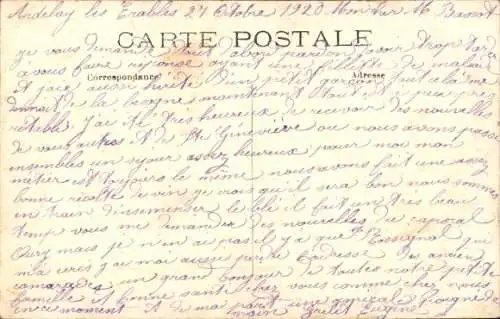 Ardelay les Erables 27 Octobre 1920 Mon cher M
CARTE POSTALE
je vous demande tout abord pardon davoir trop tardé
à vous faire réponse ayant une fillette de malade
Correspondance
Adresse
et j'ai aussi un petit garçon tout cela me
donnait de la besogne maintenant tout est à peu près
rétabli J'ai été très heureux de recevoir des nouvelles
de vous autres et de Ste Geneviève ou nous avons passé
ensembles un séjour assez heureux pour moi mon
métier est toujours le même nous avons fait une assez
bonne récolte de vin je crois qu'il sera bon nous sommes
en train d'insemenser le blé il fait un très beau
temps vous me demandez des nouvelles de caporal
Oury mais je n'en ai pas il y a que Rossignol qui
m'a écris j'ai moi aussi perdu l'adresse des anciens
camarades un grand bonjour de toutes notre petite
famille et bonne santé chez vous comme chez nous
en ce moment et de ma part une amicale poignée de
main Grelet Eugène